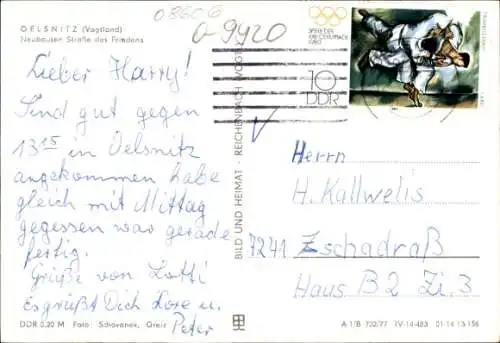 08606
a-9420
OELSNITZ (Vogtland)
Neubauten Straße des Friedens
Lieber Harry!
Sind gut gegen
13 15 in Oelsnitz
angekommen habe
gleich mit Mittag
gegessen war gerade
fertig.
Grüße von Lotti
Es grüßt Dich Lore u.
Peter
DDR 0,20 M Foto: Schovanek, Greiz
BILD UND HEIMAT · REICHENBACH (VOGTL)
SPIELE DER
XXII. OLYMPIADE
1980
10
DDR
Herrn
H. Kallwelis
7241 Zschadraß
Haus B2 Zi. 3
A 1/B 702/77 IV-14-483 01 14 13 156